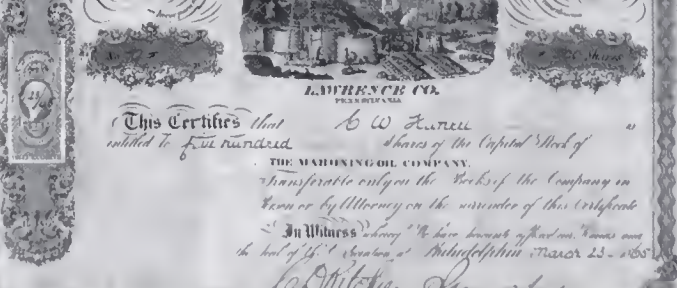 Shares
LAWRENCE CO.
PENNSYLVANIA
This Certifies that C W
entitled to five hundred Shares of the Capital Stock of
THE MAHONING OIL COMPANY.
Transferable only on the Books of the Company in
Person or by Attorney on the surrender of this Certificate
In Witness whereof We have hereunto our names and
the Seal of at Philadelphia March 23 1865